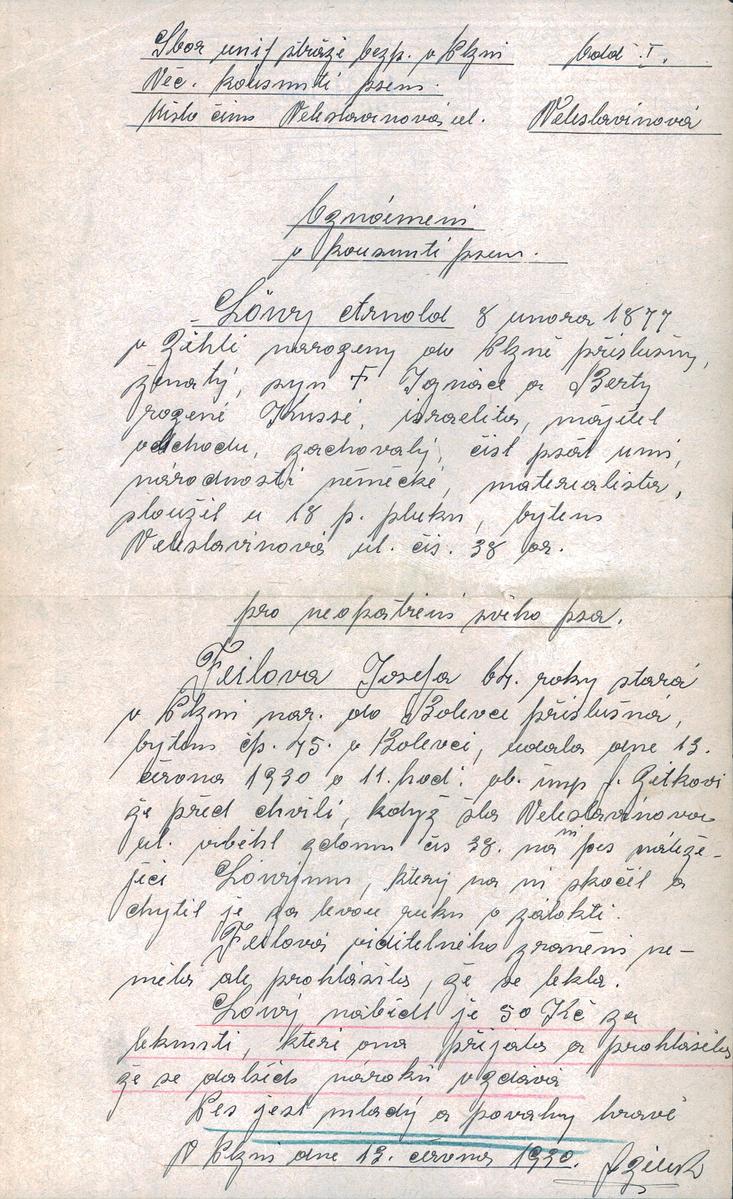 Sbor unif stráže bezp. v Plzni Odd. I.
Věc. kousnutí psem.
Místo činu Veleslavínová ul. Veleslavínová
Oznámení
o kousnutí psem.
Löwy Arnold 8 února 1877
v Žihli narozený do Plzně příslušný,
ženatý, syn † Ignáce a Berty
rozené Kussé, israelita, májitel
obchodu, zachovalý, číst psát umí,
národnosti německé, materialista,
sloužil u 18 p. pluku, bytem
Veleslavínová ul. čís. 38 or.
pro neopatření svého psa.
Feilova Josefa 64. roky stará
v Plzni nar. do Bolevce příslušná,
bytem čp. 45. v Bolevci, udala dne 13.
června 1930 o 11. hod. ob. insp J. Zítkovi
že před chvílí, když šla Veleslavínova
ul. vyběhl z domu čís 38. na ní pes nálěže-
jící Löwymu, který na ni skočil a
chytil je za levou ruku v zálokti.
Feilová viditelného zranění ne-
měla ale prohlásila, že se lekla.
Löwy nabídl je 50 Kč za
leknutí, které ona přijala a prohlásila
že se dalších nároků vzdává
Pes jest mladý a povahy hravé
V Plzni dne 13. června 1930.